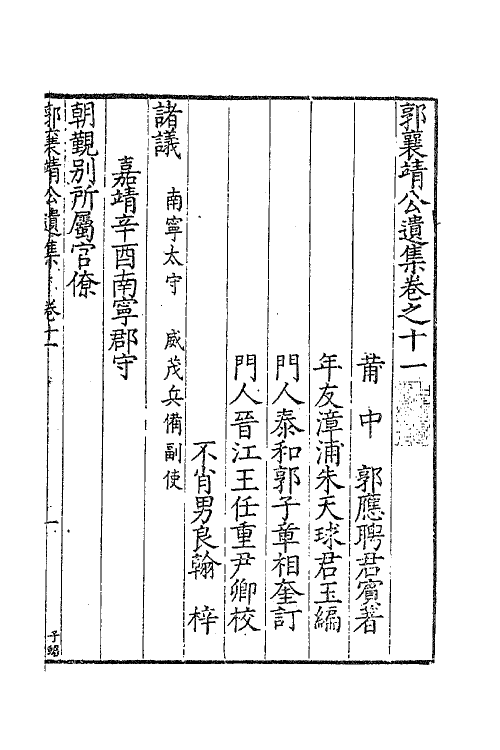 郭襄靖公遺集卷之十一
莆中　郭應聘君賓著
年友漳浦朱天球君玉編
門人泰和郭子章相奎訂
門人晉江王任重尹卿校
不肖男良翰　梓
諸議　南寧太守　威茂兵備副使
嘉靖辛酉南寧郡守
朝覲別所屬官僚
郭襄靖公遺集　卷十一　一